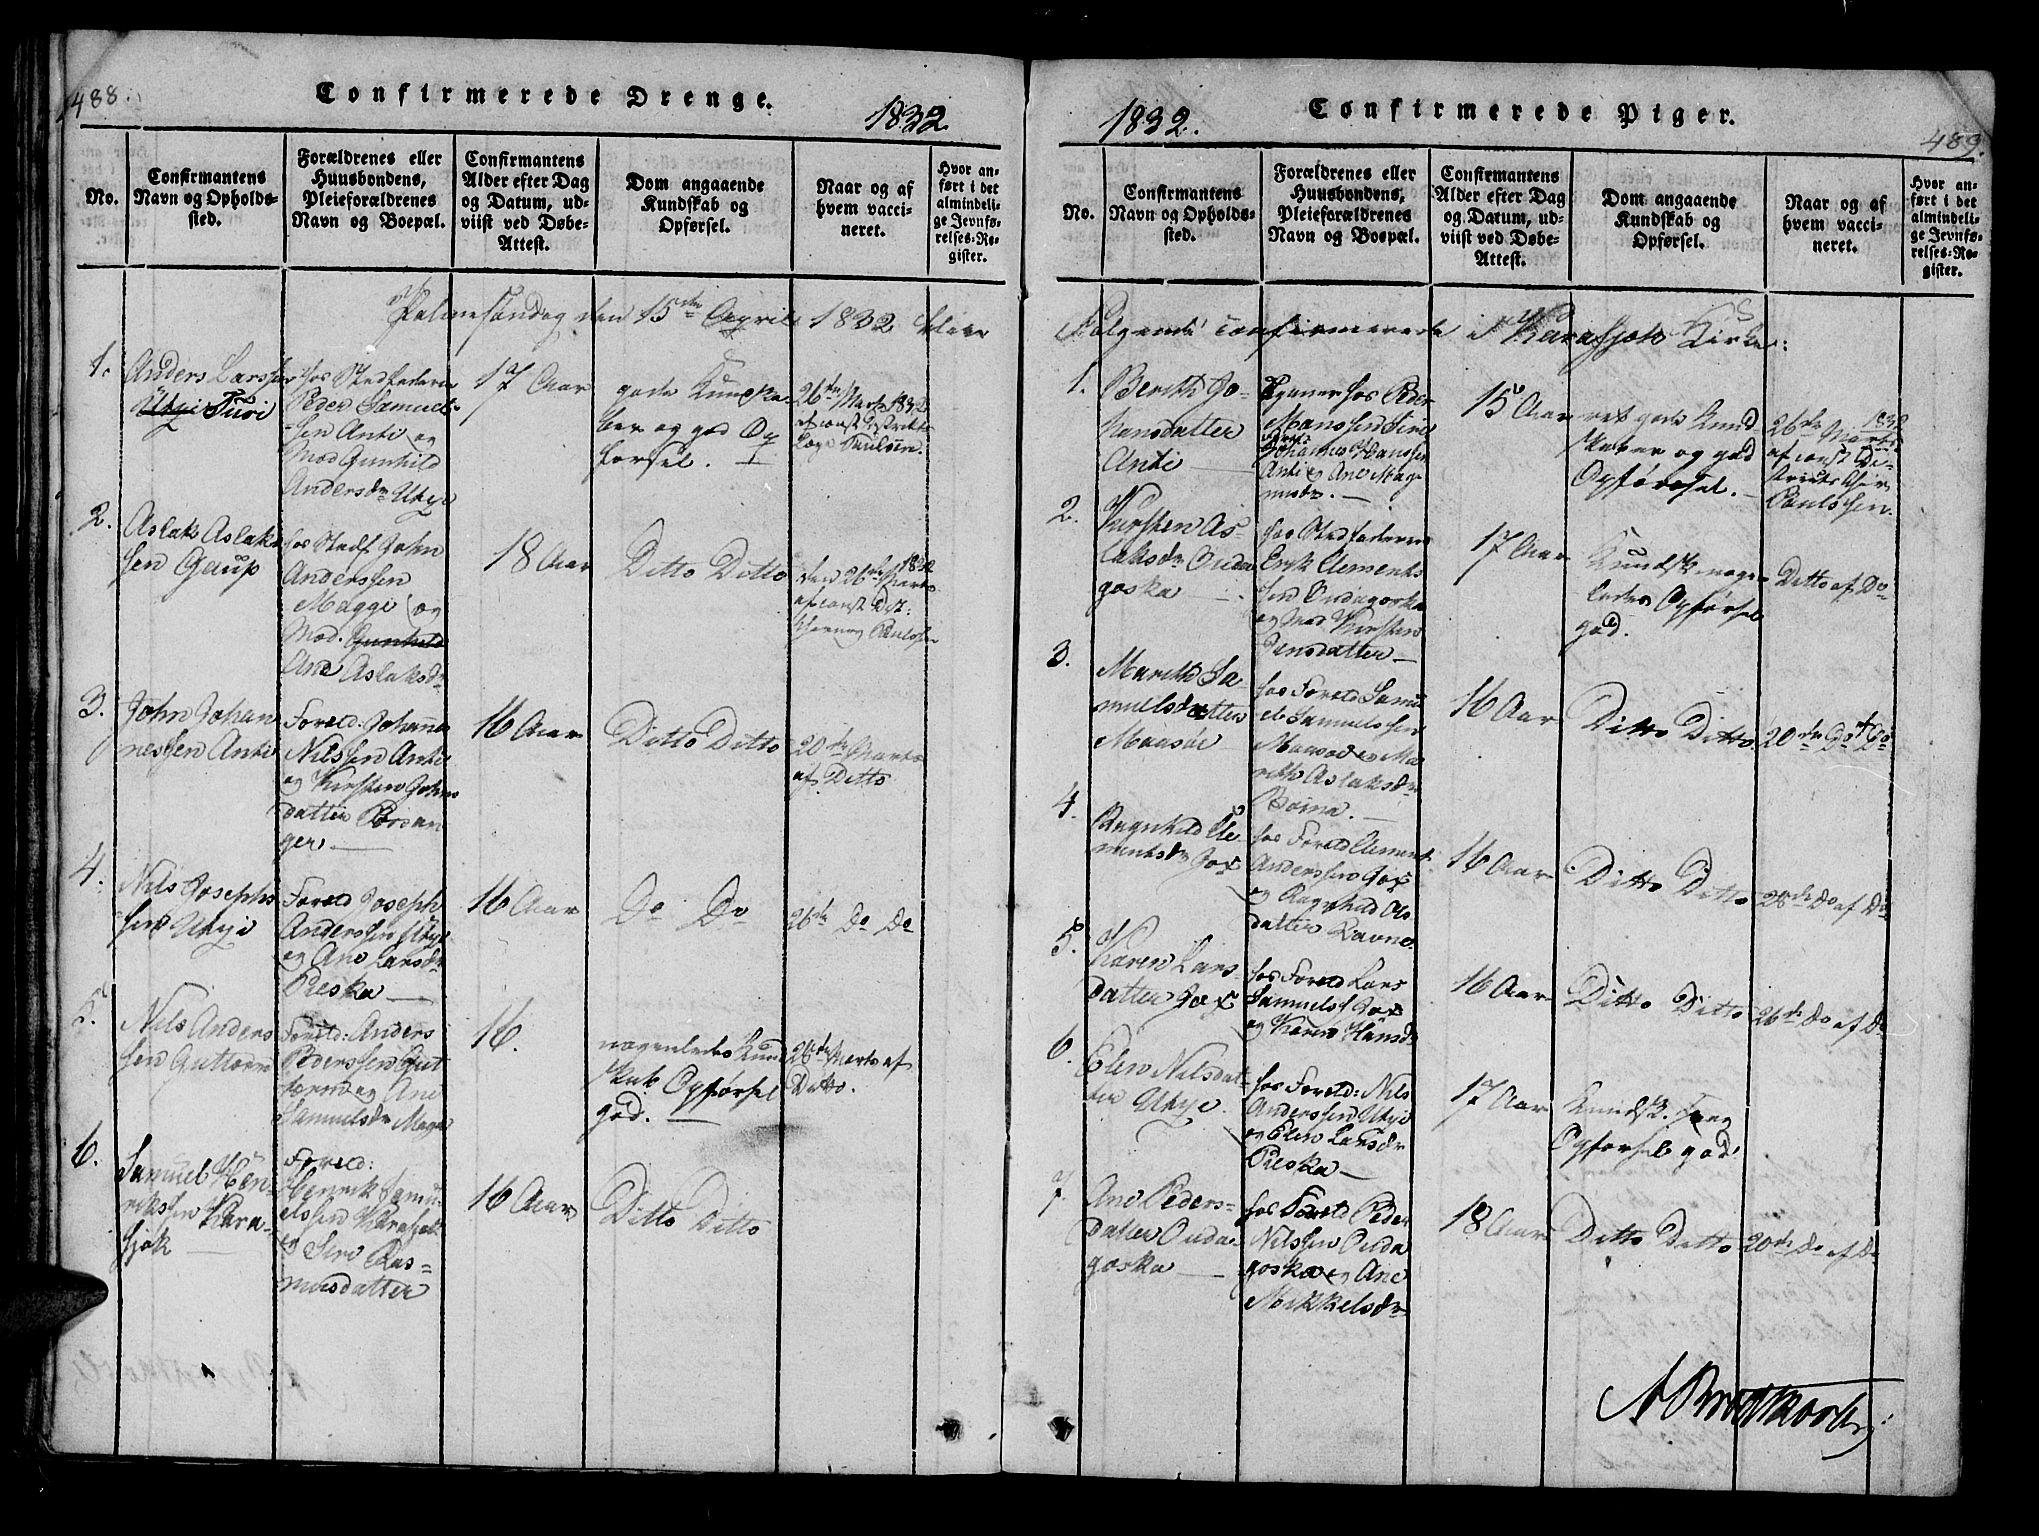 488.
Confirmerede Drenge.
1832
No.
Confirmantens
Navn og Opholds-
sted.
Forældrenes eller
Huusbondens,
Pleieforældrenes
Navn og Boepæl.
Confirmantens
Alder efter Dag
og Datum, ud-
viist ved Døbe-
Attest.
Dom angaaende
Kundskab og
Opførsel.
Naar og af
hvem vacci-
neret.
Hvor an-
ført i det
almindeli-
ge Jevnfø-
relses-Re-
gister.
Palmesøndag den 15de April 1832 bleve
1.
Anders Larssen
Utsi Turi
hos Stedfaderen
Peder Samuel-
sen Anti og
Mod Gunhild
Andersdr Utsi
17 Aar
gode Kundska-
ber og god Op-
førsel.
26de Marts 1832
af const Distrikts
Læge Paulsen.
2.
Aslak Aslak-
sen Gaup
hos Stedf John
Anderssen
Maggi og
Mod. Gunhild
Ane Aslaksdr
18 Aar
Ditto Ditto
den 26de Marts 1832
af const Dist:
Paulsen
3.
John Johan
nessen Anti
Foreld: Johannes
Nilssen Anti
og Kirsten Johns
datter Porsan
ger
16 Aar
Ditto Ditto
20de Marts
af Ditto
4.
Nils Josephs
sen Utsi
Foreld Joseph
Anderssen Utsi
og Ane Larsdr
Pieska
16 Aar
Do Do
26de Do Do
5.
Nils Anders
sen Guttorm
Foreld: Anders
Pederssen Gut
torm og Ane
Samuelsdr
16.
nogenledes Kund
skab Opførsel
god.
26de Marts af
Ditto.
6.
Samuel Hen-
rikssen Kara-
sjok
Foreld:
Henrik Samu-
elssen Karasjok
og Siri Ras-
musdatter
16 Aar
Ditto Ditto
1832.
Confirmerede Piger.
489.
No.
Confirmantens
Navn og Opholds-
sted.
Forældrenes eller
Huusbondens,
Pleieforældrenes
Navn og Boepæl.
Confirmantens
Alder efter Dag
og Datum, ud-
viist ved Døbe-
Attest.
Dom angaaende
Kundskab og
Opførsel.
Naar og af
hvem vacci-
neret.
Hvor an-
ført i det
almindeli-
ge Jevnfø-
relses-Re-
gister.
Følgende confirmerede i Karasjok Kirke:
1.
Berith Jo-
hansdatter
Anti
tjener hos Peder
Manssen Siri
Johannes Hanssen
Anti og Ane Mag-
nusdr.
15 Aar
ret gode Kund-
skaber og god
Opførsel.
26de Marts 1832
af const Di-
stricts Chir
Paulssen.
2.
Kirsten As-
laksdr Ouda
goska
hos Stedfaderen
Erik Clements
sen Oudagoska
og Mod Kirsten
Jensdatter
17 Aar
Kundsk. nogen
ledes Opførsel
god.
Ditto af Do
3.
Marith Sa-
muelsdatter
Maasøe
hos Foreld Samu
el Samuelssen
Maasøe og Ma
rith Aslaksdr
Boina.
16 Aar
Ditto Ditto
20de Do af Do
4.
Ragnhild Cle-
mentsdr Jox
hos Foreld Clement
Anderssen Jox
og Ragnhild Ols-
datter Ravna
16 Aar
Ditto Ditto
28de Do af Do
5.
Karen Lars-
datter Jox
hos Foreld Lars
Samuels: Jox
og Karen Hansdr
16 Aar
Ditto Ditto
26de Do af Do
6.
Elen Nilsdat-
ter Utsi.
hos Foreld: Nils
Anderssen Utsi
og Elen Larsdr
Pieska
17 Aar
Kundsk.
Opførsel god
7.
Ane Peders-
datter Ouda-
goska
hos Foreld Peder
Nilssen Ouda
goska og Ane
Mikkelsdr
18 Aar
Ditto Ditto
20de Do af Do